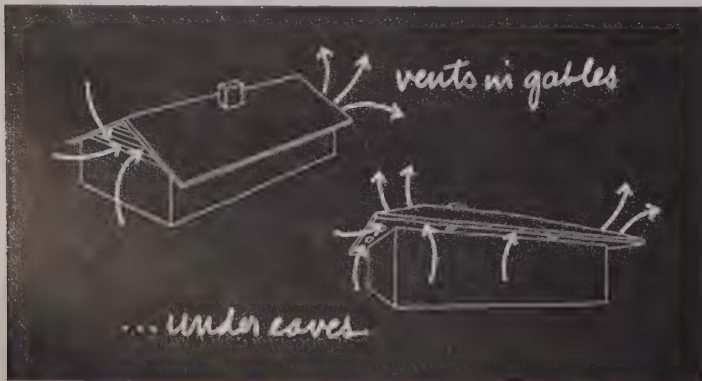 vents in gables
...under eaves